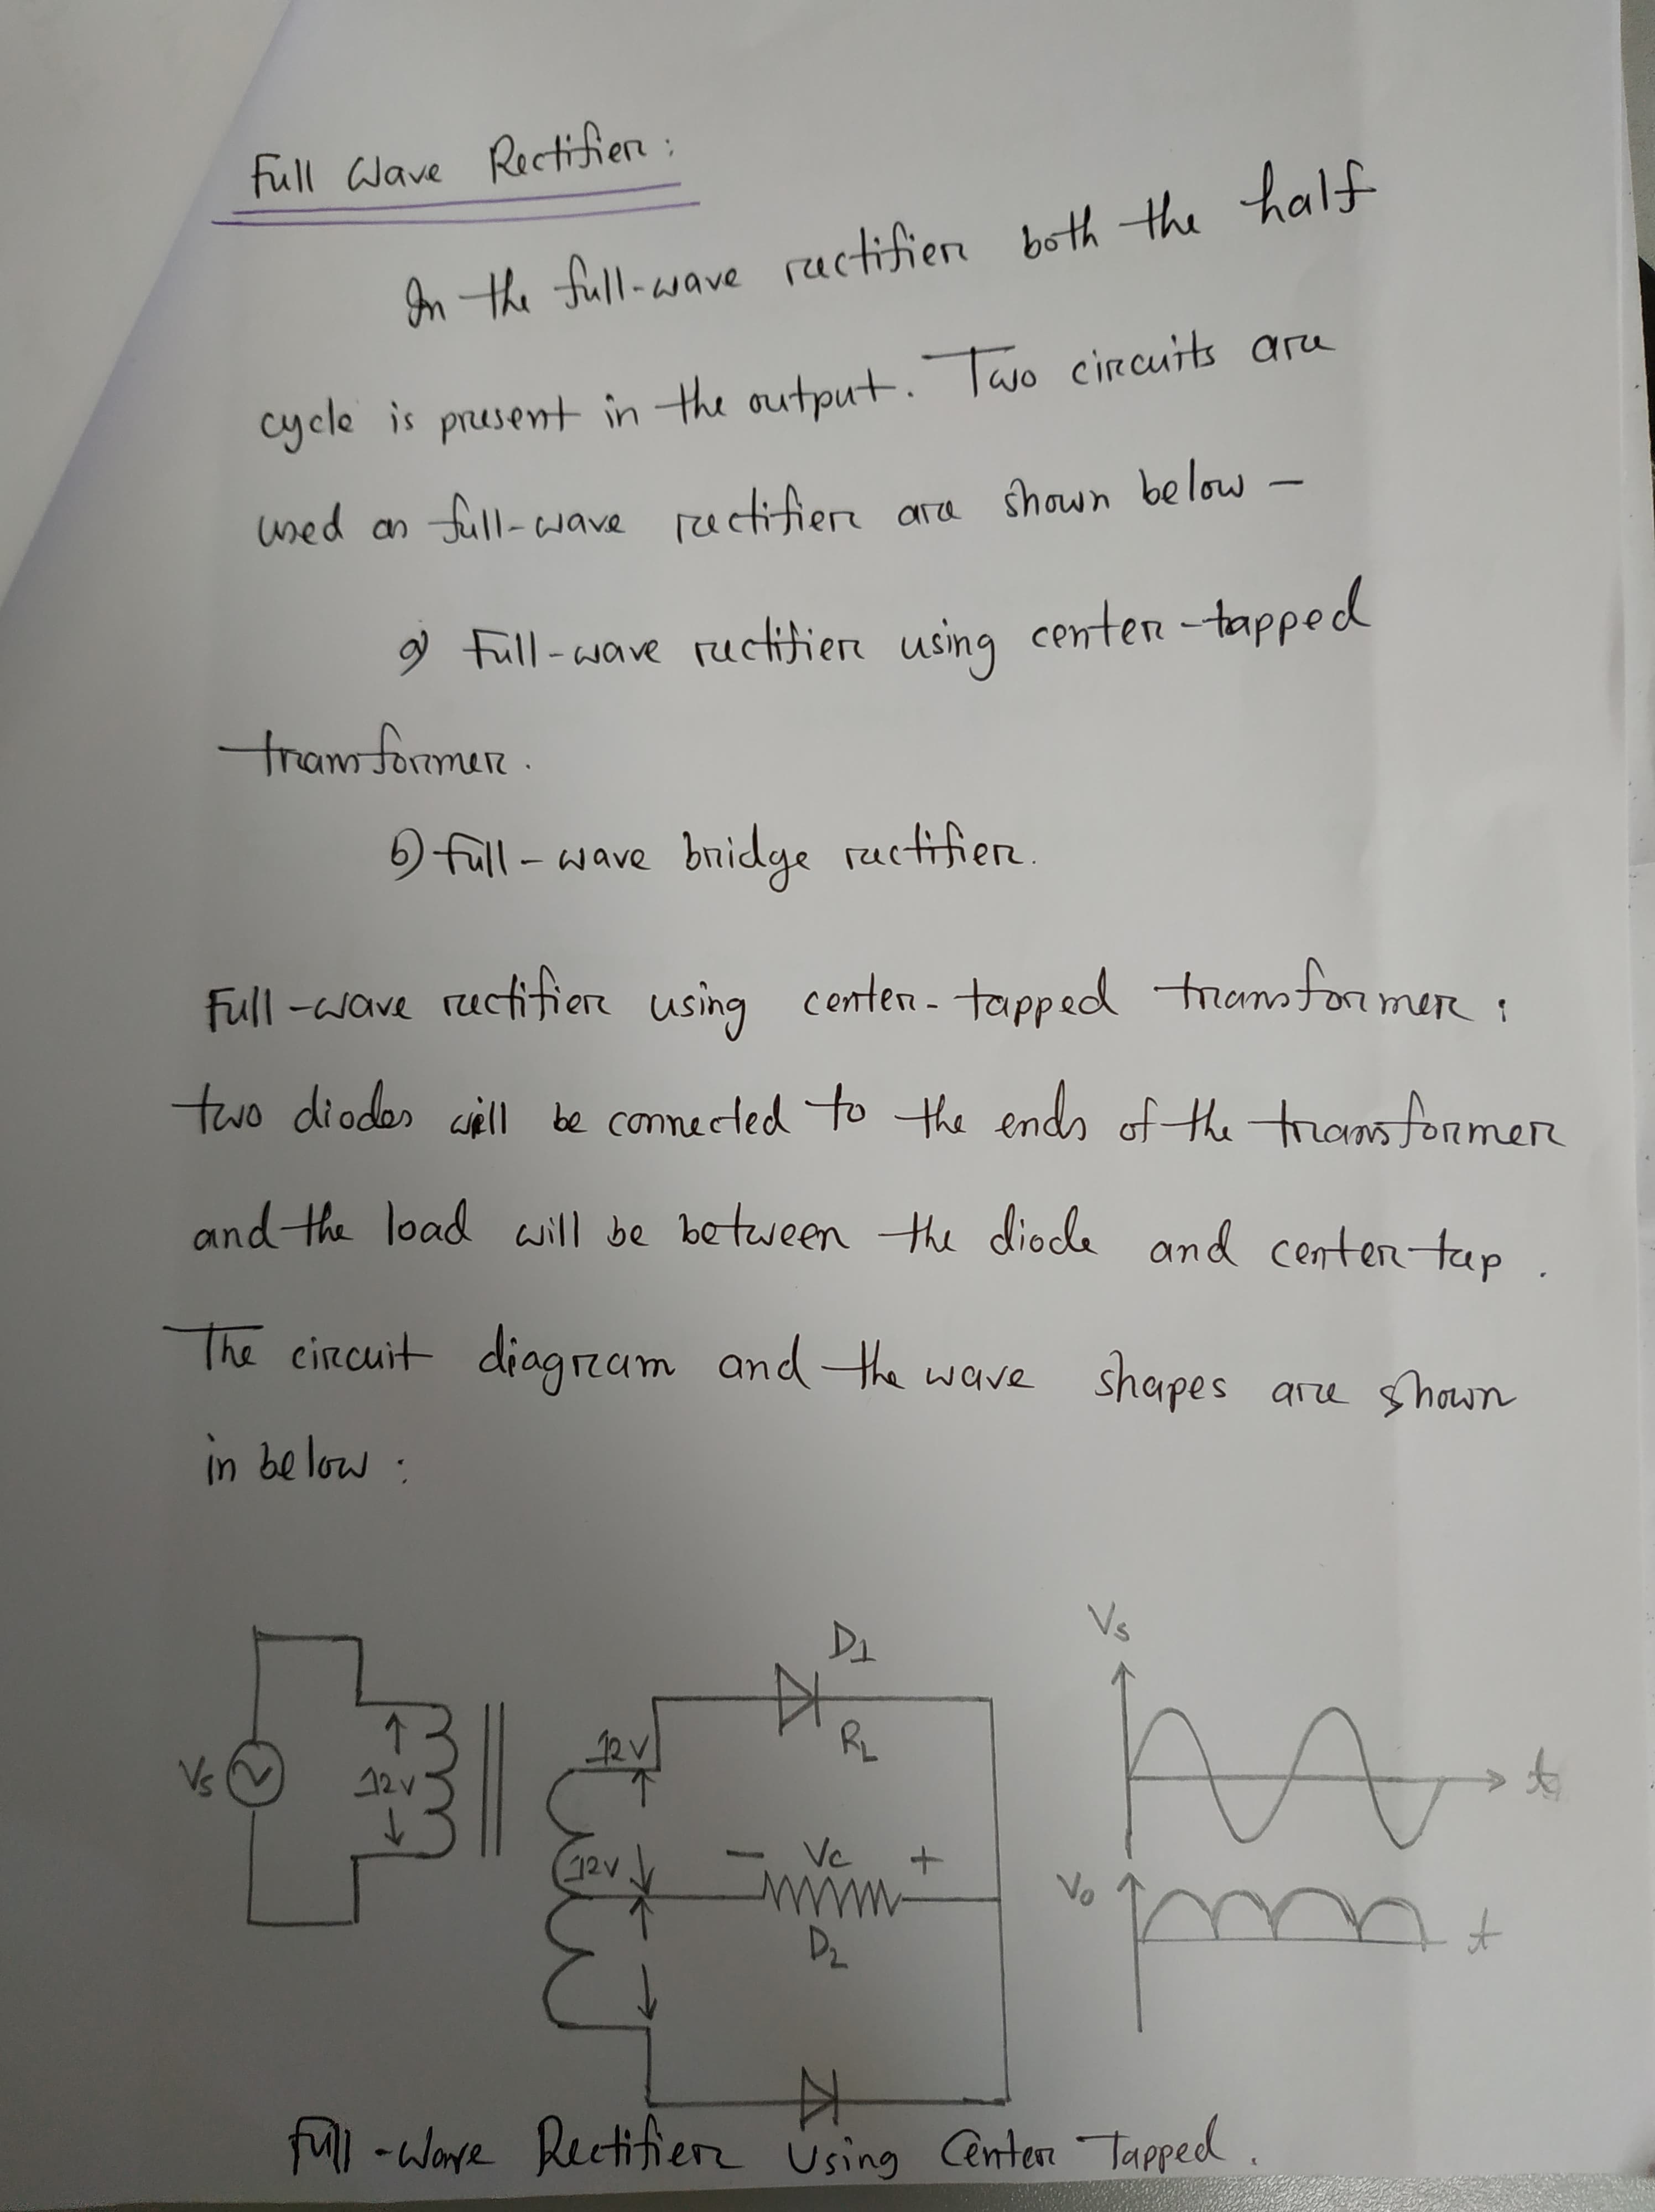 Full Wave Rectifier:
In the full-wave rectifier both the half
cycle is present in the output. Two circuits are
used as full-wave rectifier are shown below -
a) Full-wave rectifier using center-tapped
transformer.
b) full-wave bridge rectifier.
Full-wave rectifier using center-tapped transformer:
two diodes will be connected to the ends of the transformer
and the load will be between the diode and center tap.
The circuit diagram and the wave shapes are shown
in below:
Vs
12V
12V
12V
D1
RL
- Vc +
D2
Vs
t
Vo
t
Full-Wave Rectifier Using Center Tapped.